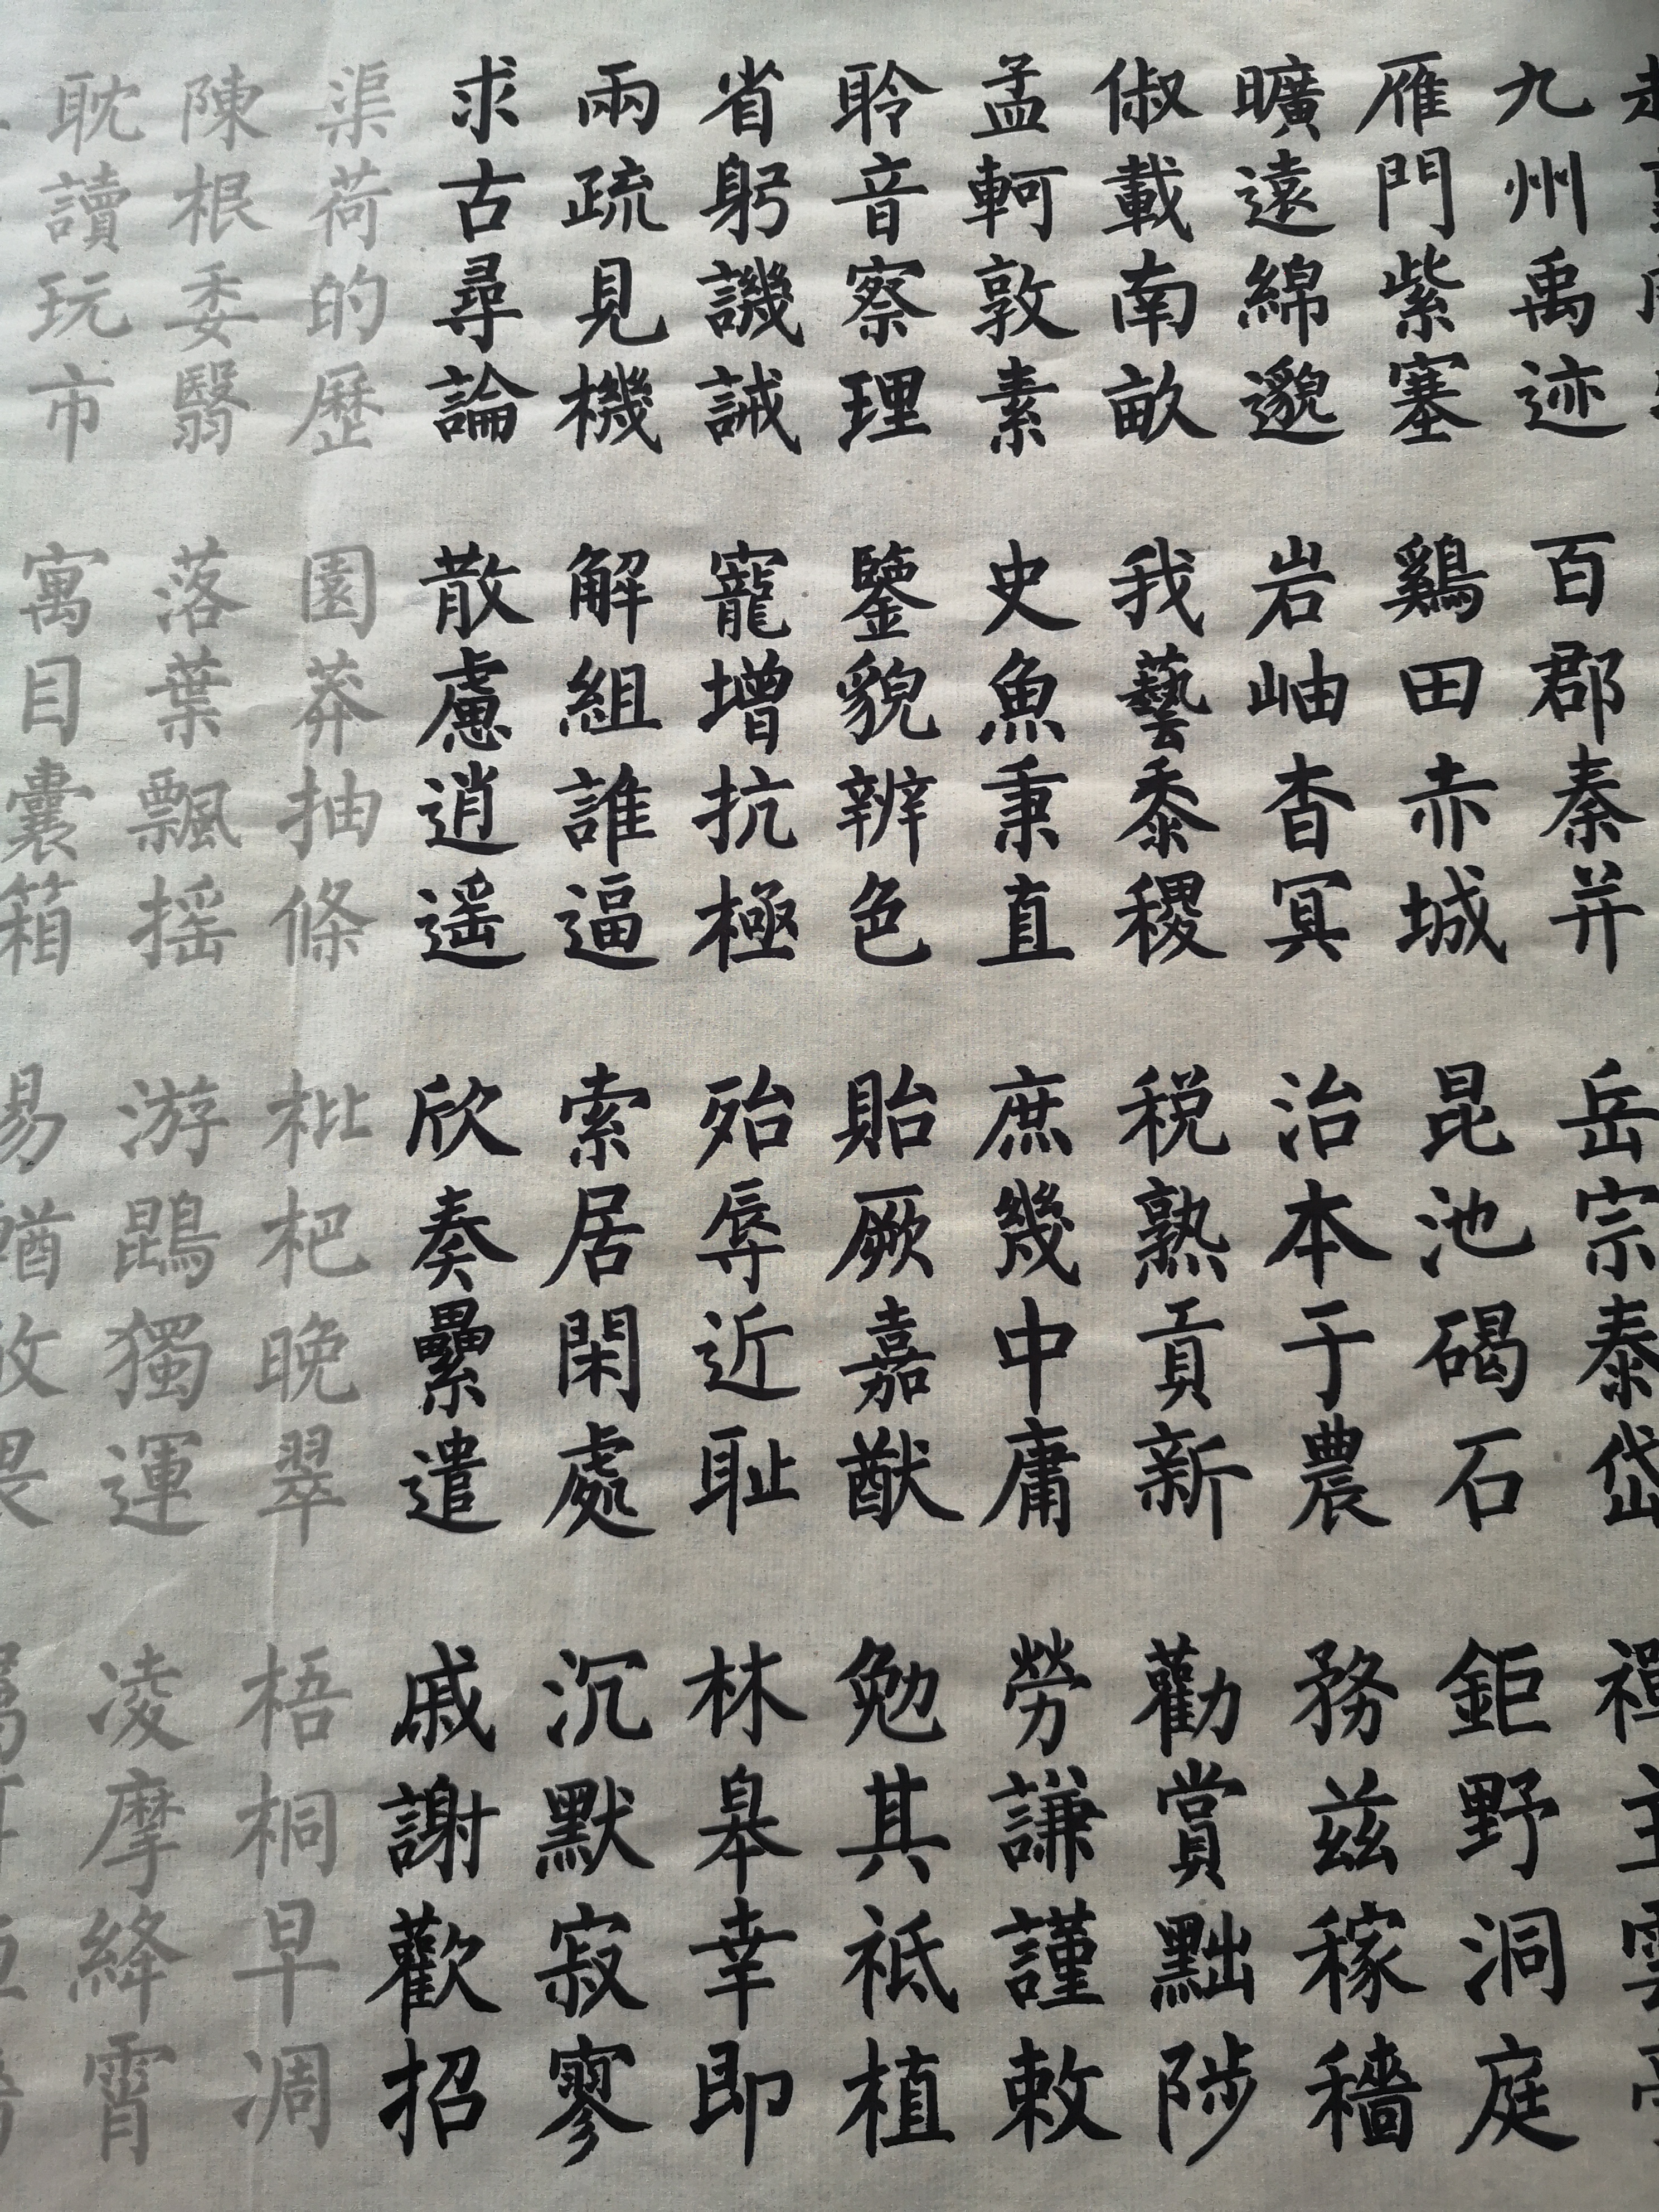 九州禹迹 百郡秦并 岳宗泰岱 禪
雁門紫塞 鷄田赤城 昆池碣石 鉅野洞庭
曠遠綿邈 岩岫杳冥 治本于農 務兹稼穡
俶載南畝 我藝黍稷 税熟貢新 勸賞黜陟
孟軻敦素 史魚秉直 庶幾中庸 勞謙謹敕
聆音察理 鑒貌辨色 貽厥嘉猷 勉其祗植
省躬譏誡 寵增抗極 殆辱近耻 林皋幸即
兩疏見機 解組誰逼 索居閑處 沉默寂寥
求古尋論 散慮逍遥 欣奏纍遣 戚謝歡招
渠荷的歷 園莽抽條 枇杷晚翠 梧桐早凋
陳根委翳 落葉飄摇 游鵾獨運 凌摩絳霄
耽讀玩市 寓目囊箱 易